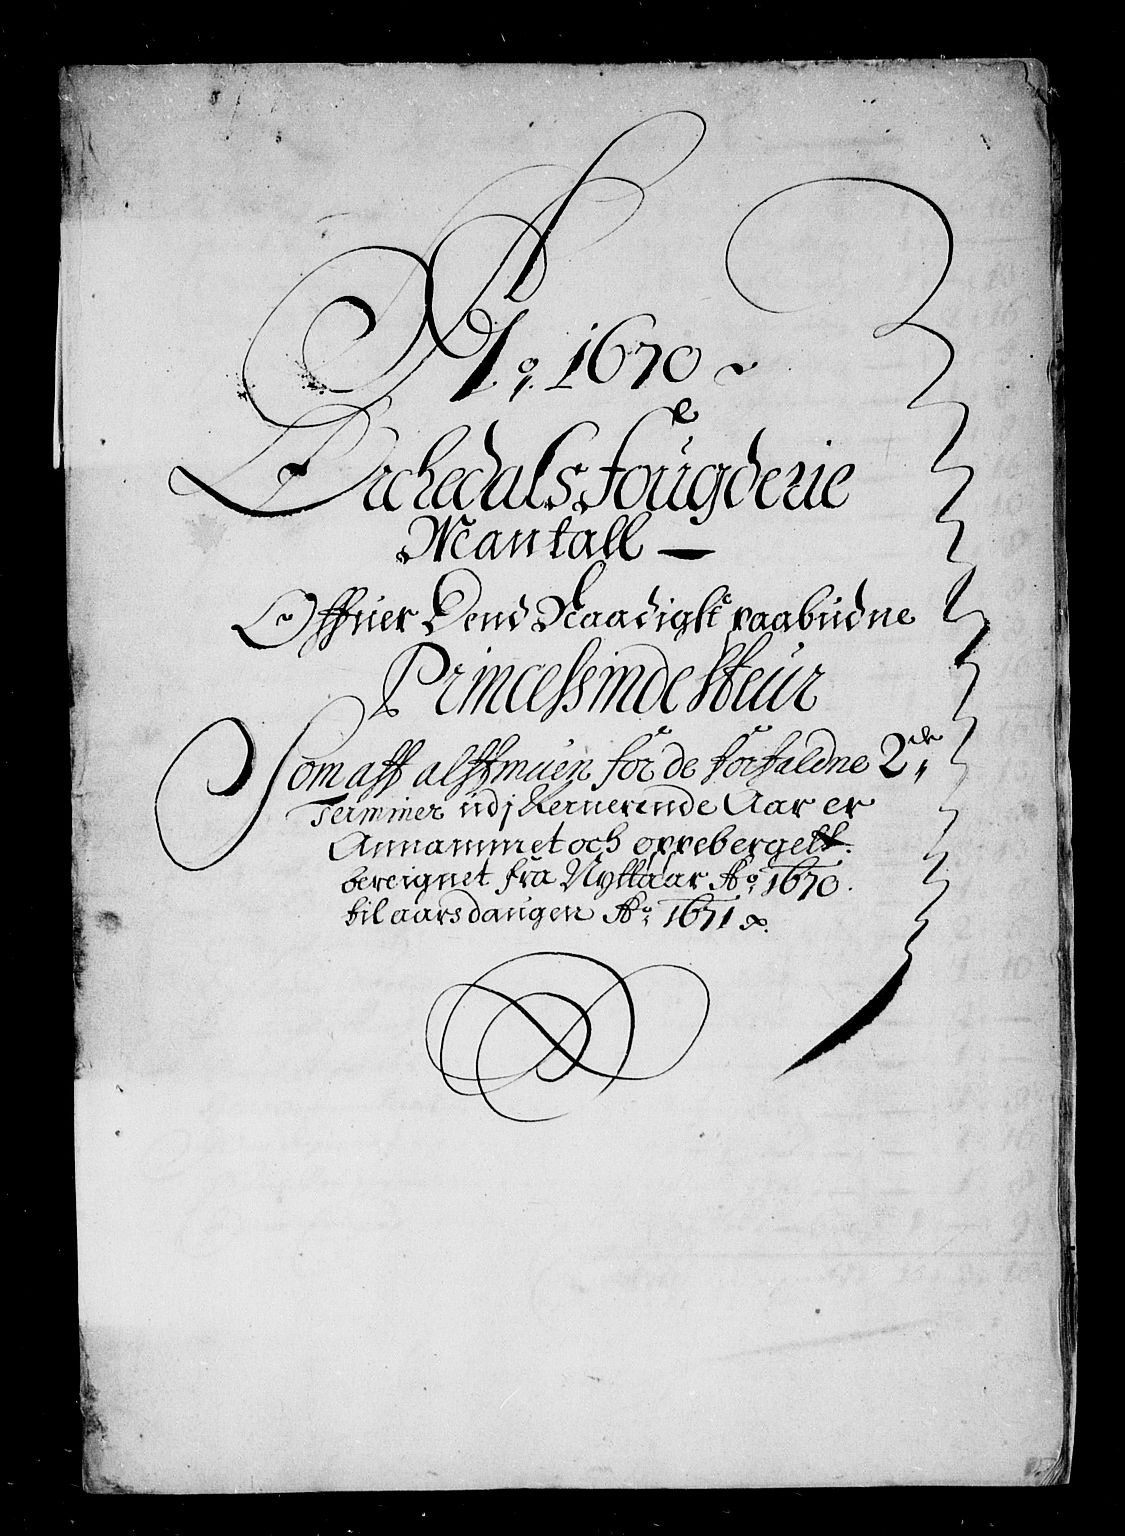 Ao. 1670
Orchedals fougderie
Mantall
Offuer Dend Naadigst paabudne
Princessinde Steur
Som aff alssmuen for de forfaldne 2de
Terminer udj Nernerende Aar er
Annammet och oppeberget.
bereignet fra Nyttaar Ao. 1670.
til aarsdaugen Ao. 1671